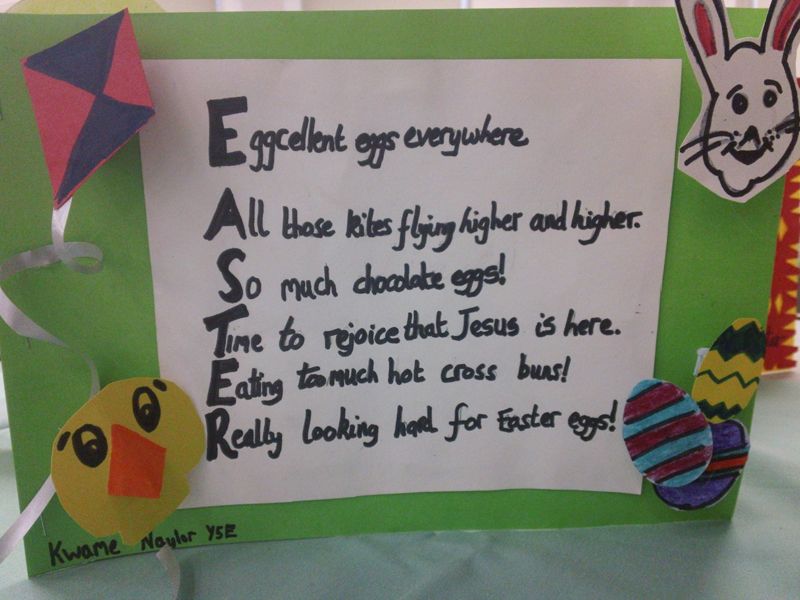 Eggcellent eggs everywhere
All those kites flying higher and higher.
So much chocolate eggs!
Time to rejoice that Jesus is here.
Eating too much hot cross buns!
Really looking hard for Easter eggs!
Kwame Naylor Y5E